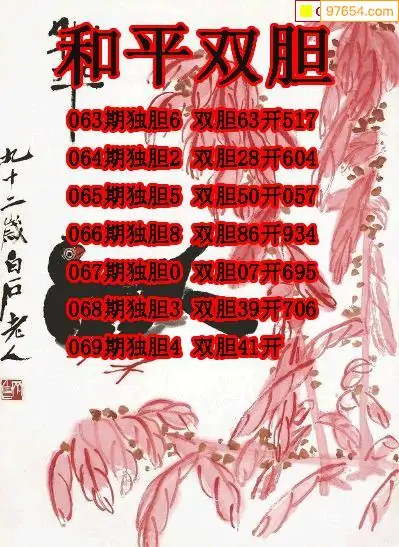 97654.com
和平双胆
063期独胆6 双胆63开517
064期独胆2 双胆28开604
065期独胆5 双胆50开057
066期独胆8 双胆86开934
067期独胆0 双胆07开695
068期独胆3 双胆39开706
069期独胆4 双胆41开
九十二岁白石老人